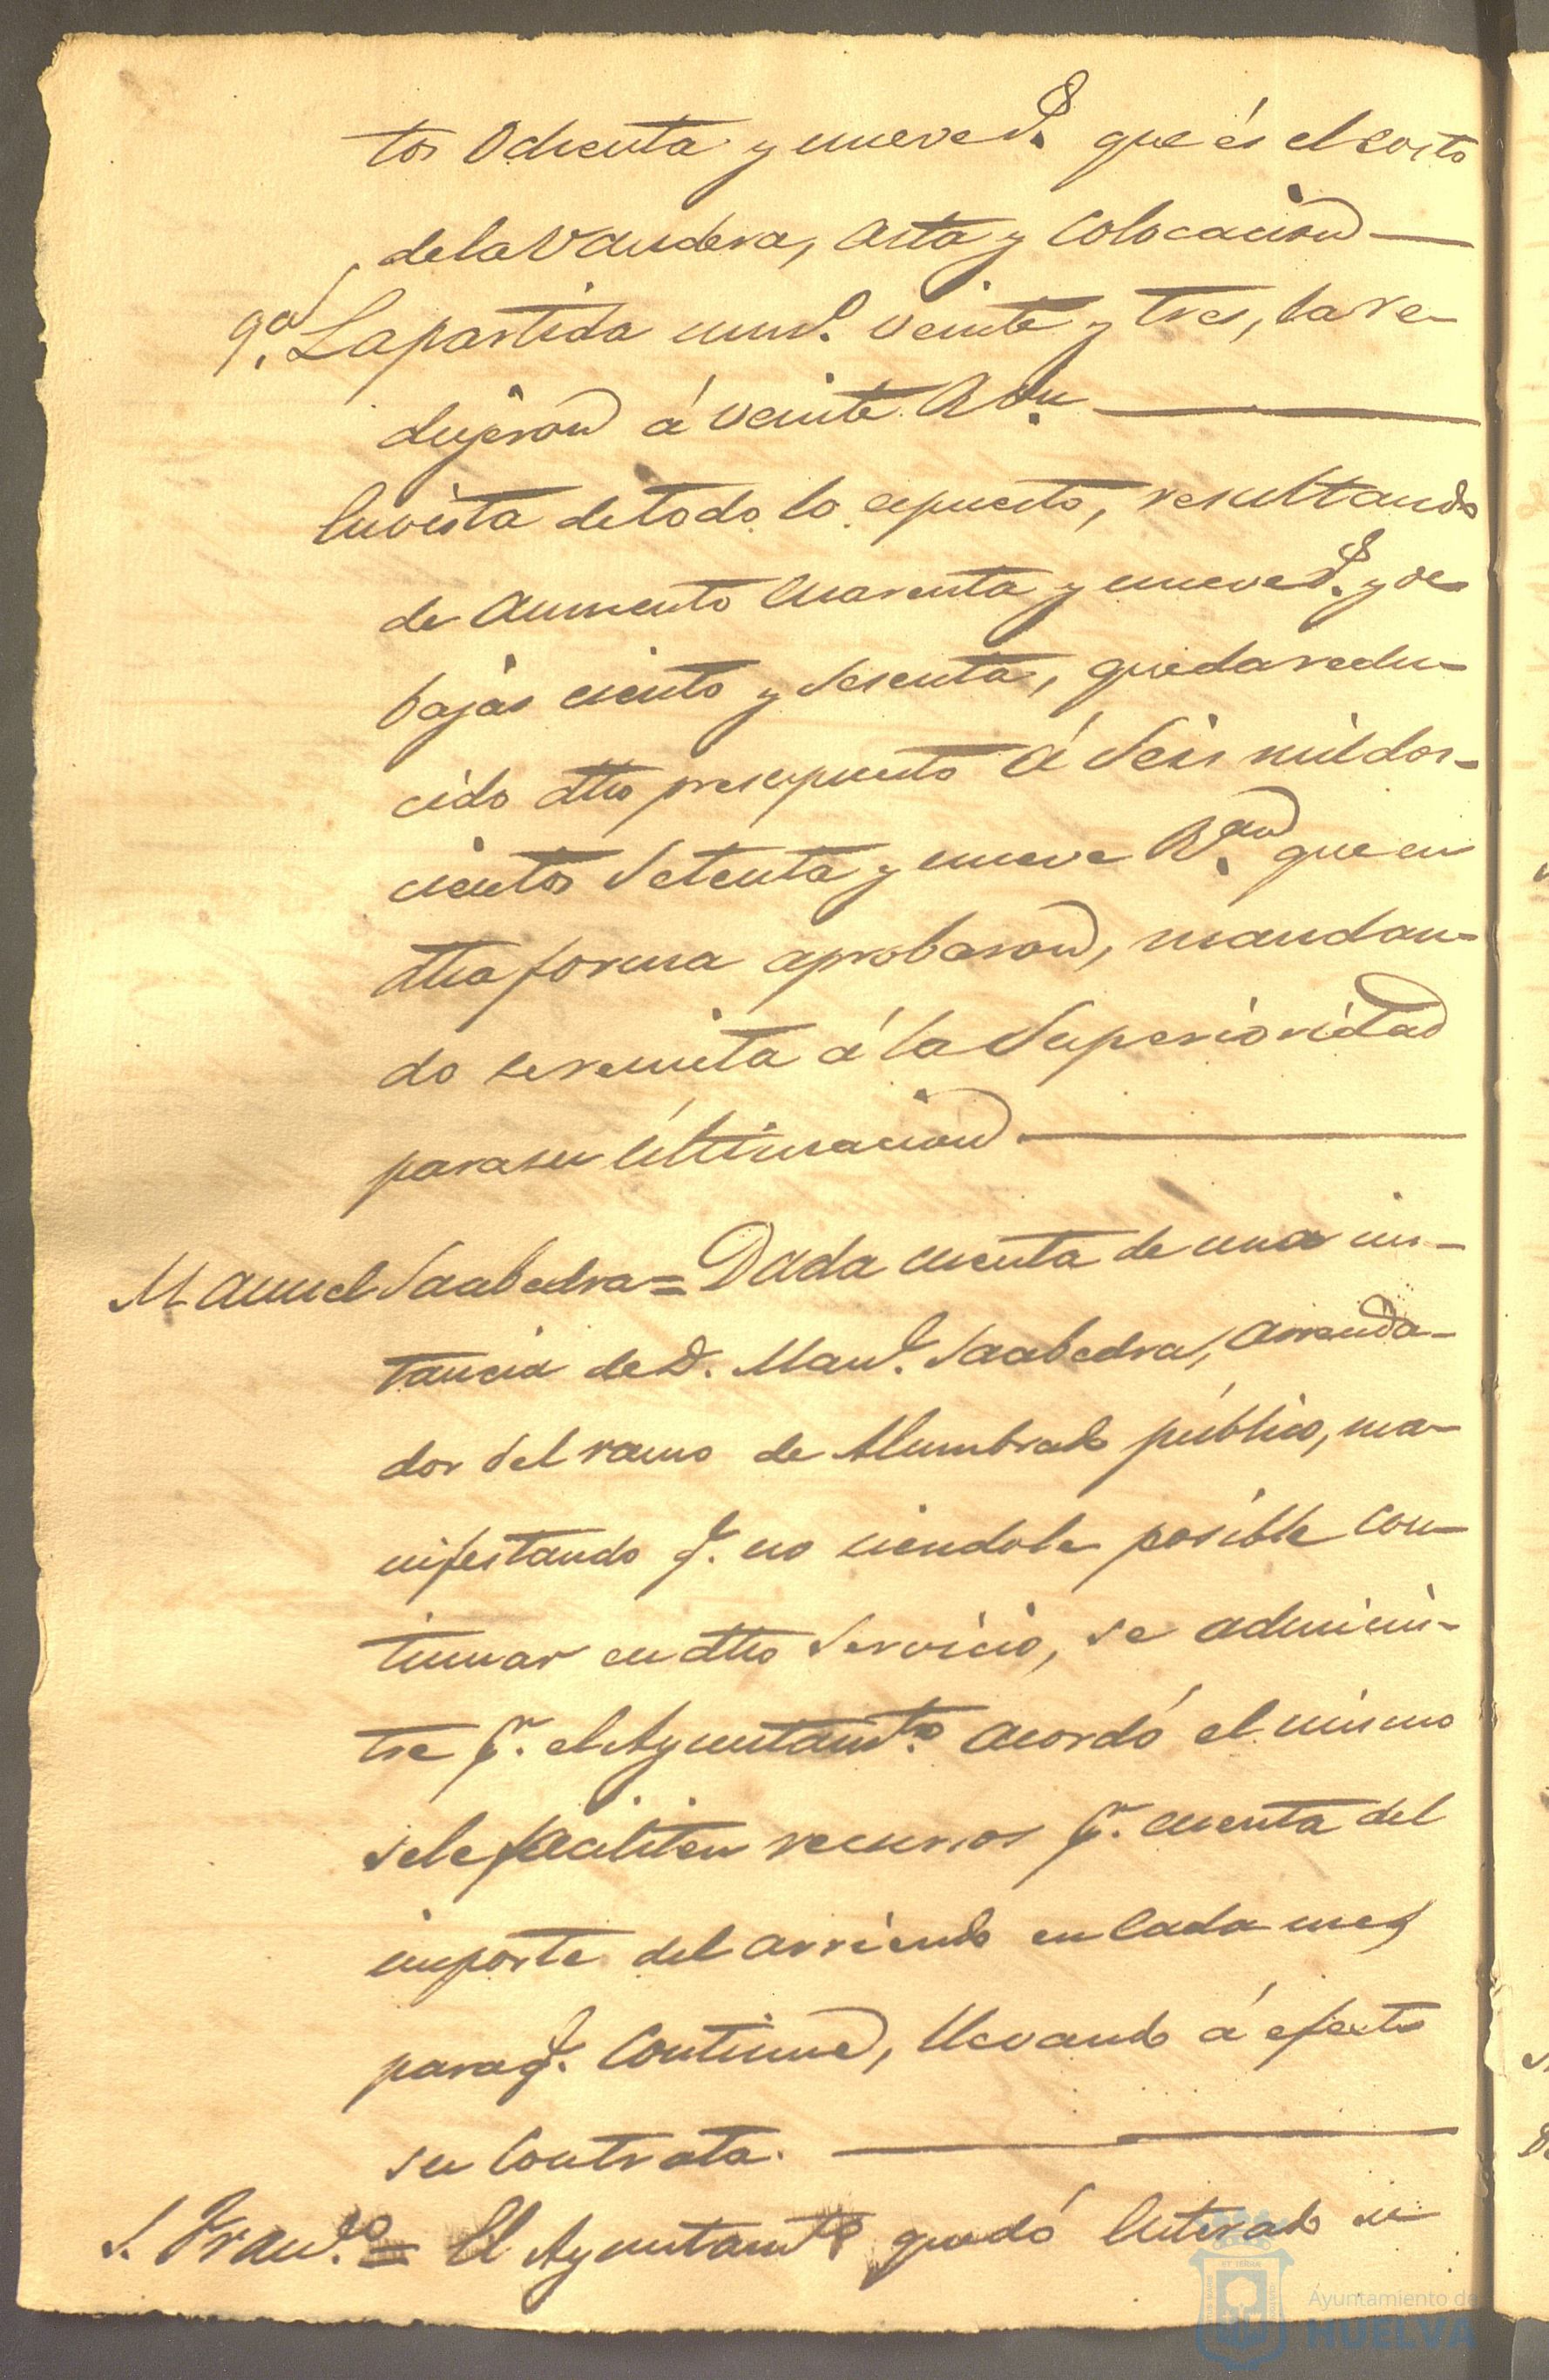 tos Ochenta y nueve r.s que és el costo
de la Vandera, Asta y Colocacion —
9.a La partida num.o veinte y tres, la re-
dujeron á veinte R vn —
En vista de todo lo espuesto, resultando
de Aumento Cuarenta y nueve r.s y de
bajas ciento y sesenta, queda redu-
cido dho presupuesto á Seis mil dos-
cientos Setenta y nueve R.s que en
dha forma aprobaron, mandan-
do se remita á la Superioridad
para su Ultimacion —
Manuel Saabedra = Dada cuenta de una ins-
tancia de D. Man.l Saabedra, arrenda-
dor del ramo de Alumbrado público, ma-
nifestando q.e no siendole posible con-
tinuar en dho Servicio, se adminis-
tre p.r el Ayuntam.to acordó el mismo
se le faciliten recursos p.r cuenta del
importe del arriendo en Cada mes
para q.e Continue, llevando á efecto
su Contrata. —
S. Fran.co = El Ayuntam.to quedó Enterado de
Ayuntamiento de
HUELVA